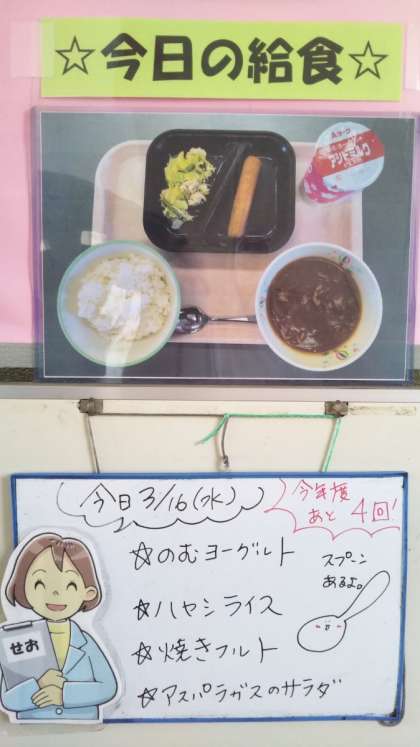 ☆今日の給食☆
アシドミルク
今日 3/16(水)
今年度
あと 4回!
☆のむヨーグルト
スプーン
あるよ。
☆ハヤシライス
☆焼きフルト
☆アスパラガスのサラダ
せお